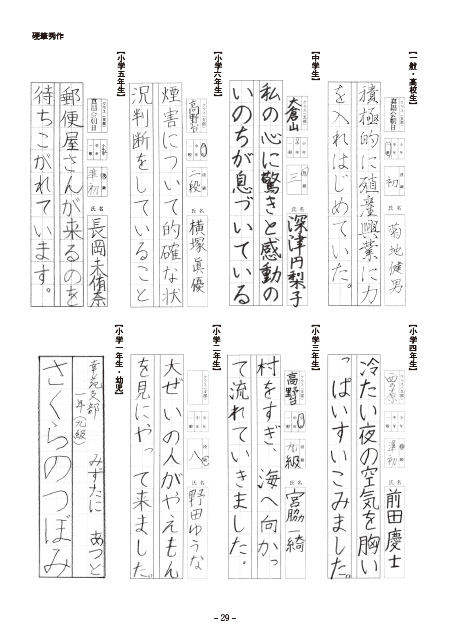 硬筆秀作
【一般・高校生】
菊地健男
積極的に殖産興業に力
を入れはじめていた。
【中学生】
大倉山
三
深津円梨子
私の心に驚きと感動の
いのちが息づいている
【小学六年生】
高野台
二段
横塚眞優
煙害について的確な状
況判断をしていること
【小学五年生】
真昌会朝日
準初
長岡未侑奈
郵便屋さんが来るのを
待ちこがれています。
【小学四年生】
準初
前田慶士
冷たい夜の空気を胸い
っぱいすいこみました。
【小学三年生】
高野台
九級
宮脇一綺
村をすぎ、海へ向かっ
て流れていきました。
【小学二年生】
八
野田ゆうな
大ぜいの人がやえもん
を見にやって来ました。
【小学一年生・幼児】
幸苑支部
一年(九級)
みずたに あつと
さくらのつぼみ
- 29 -